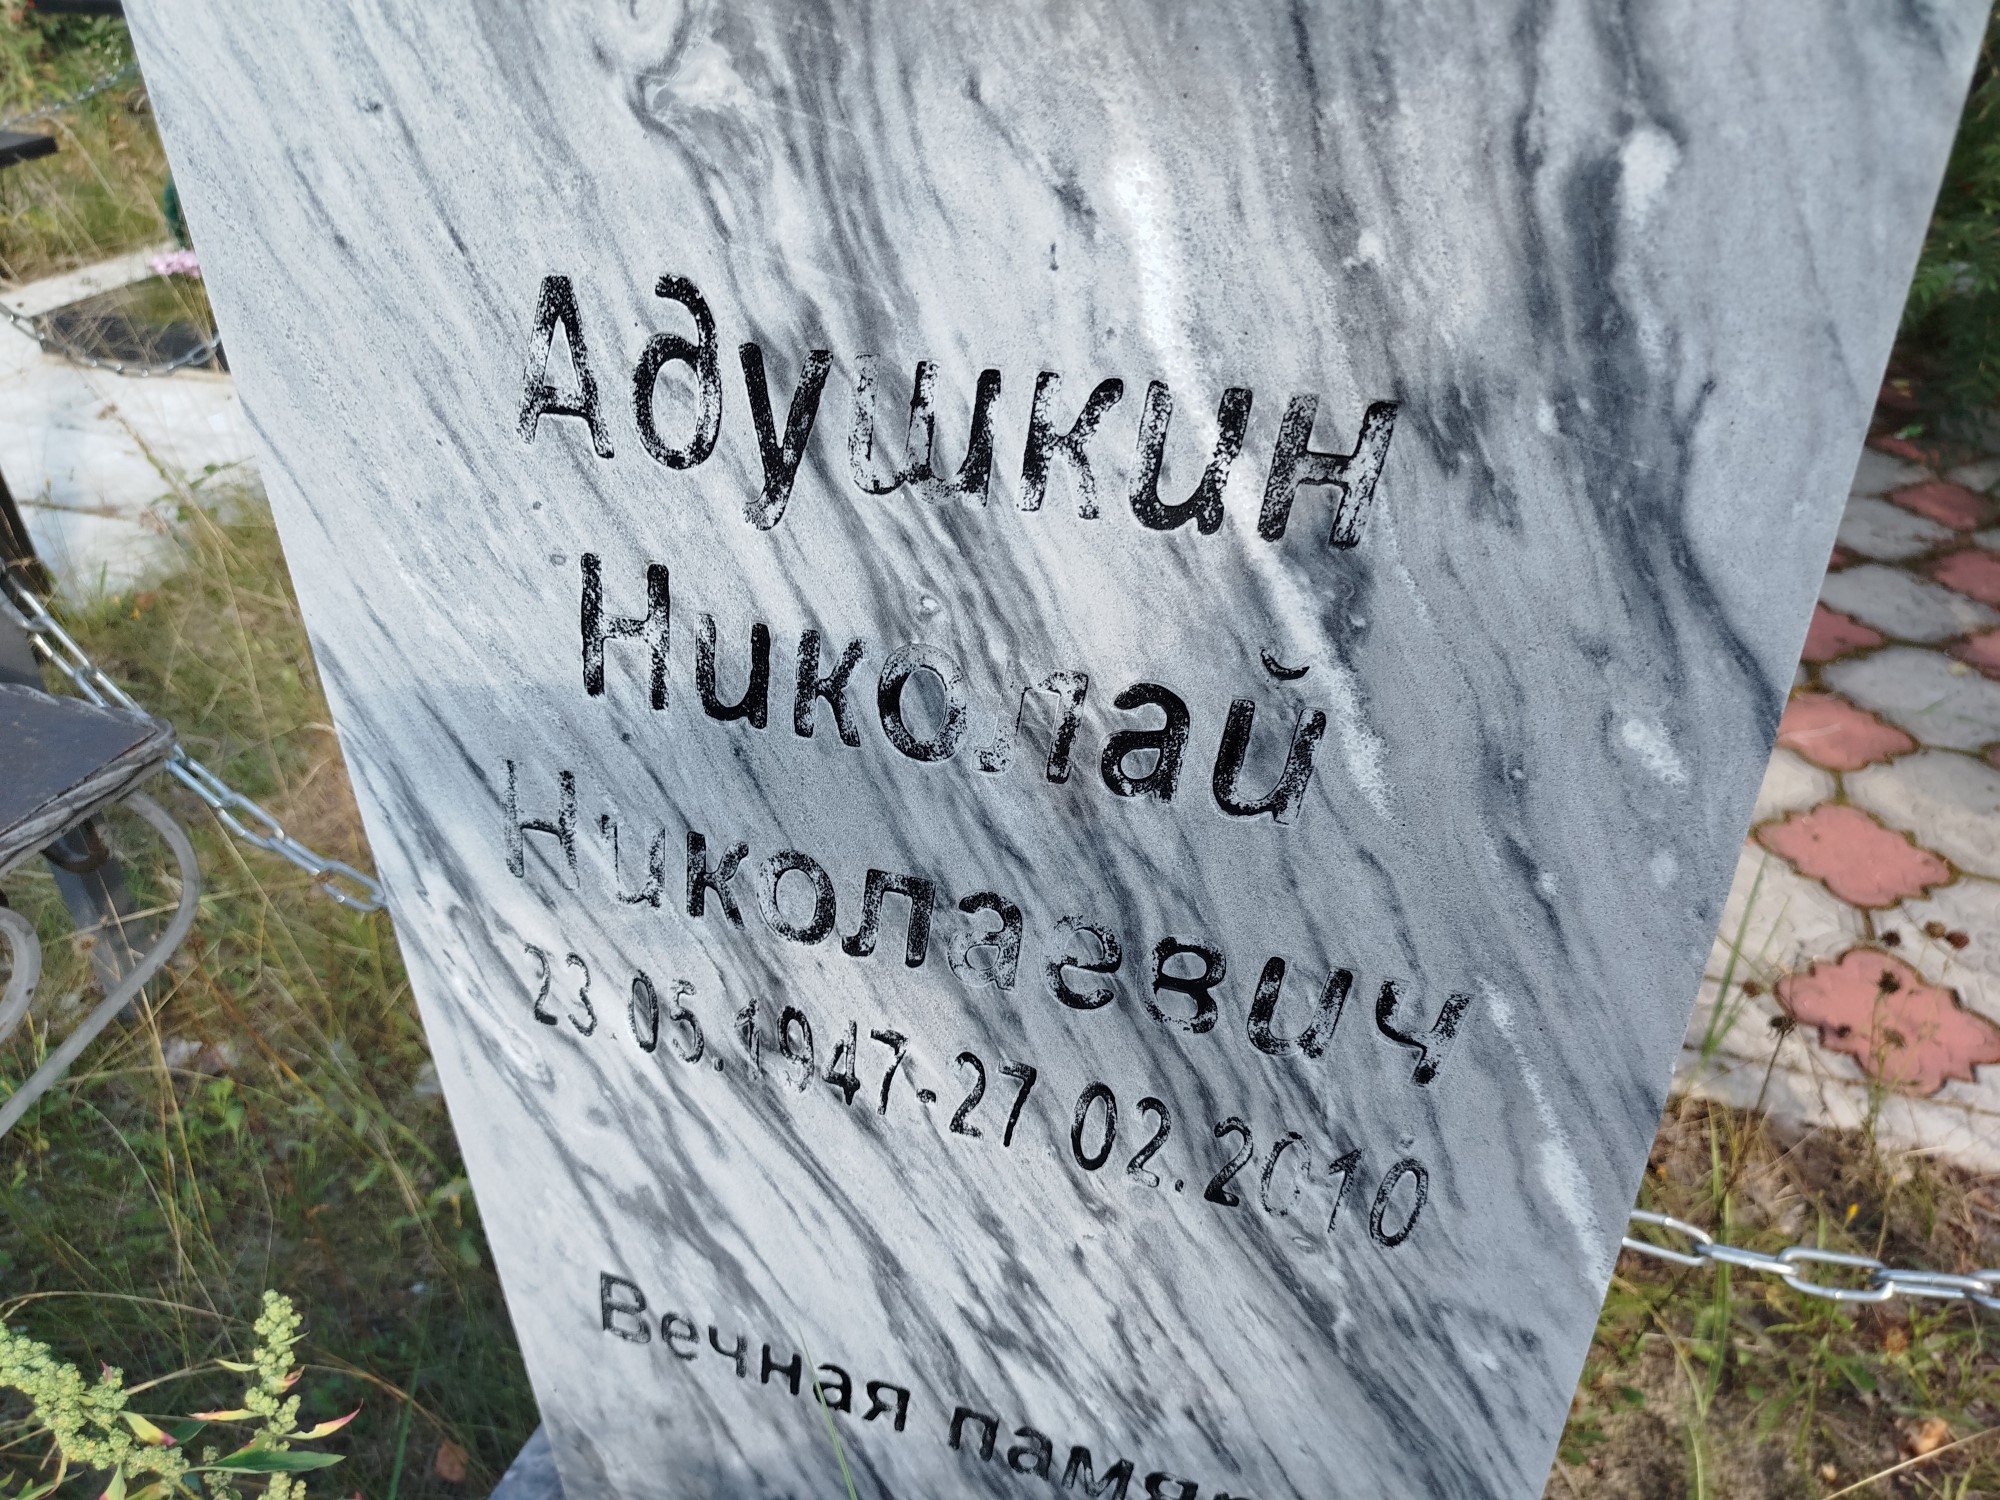 Адушкин
Николай
Николаевич
23.05.1947-27.02.2010
Вечная